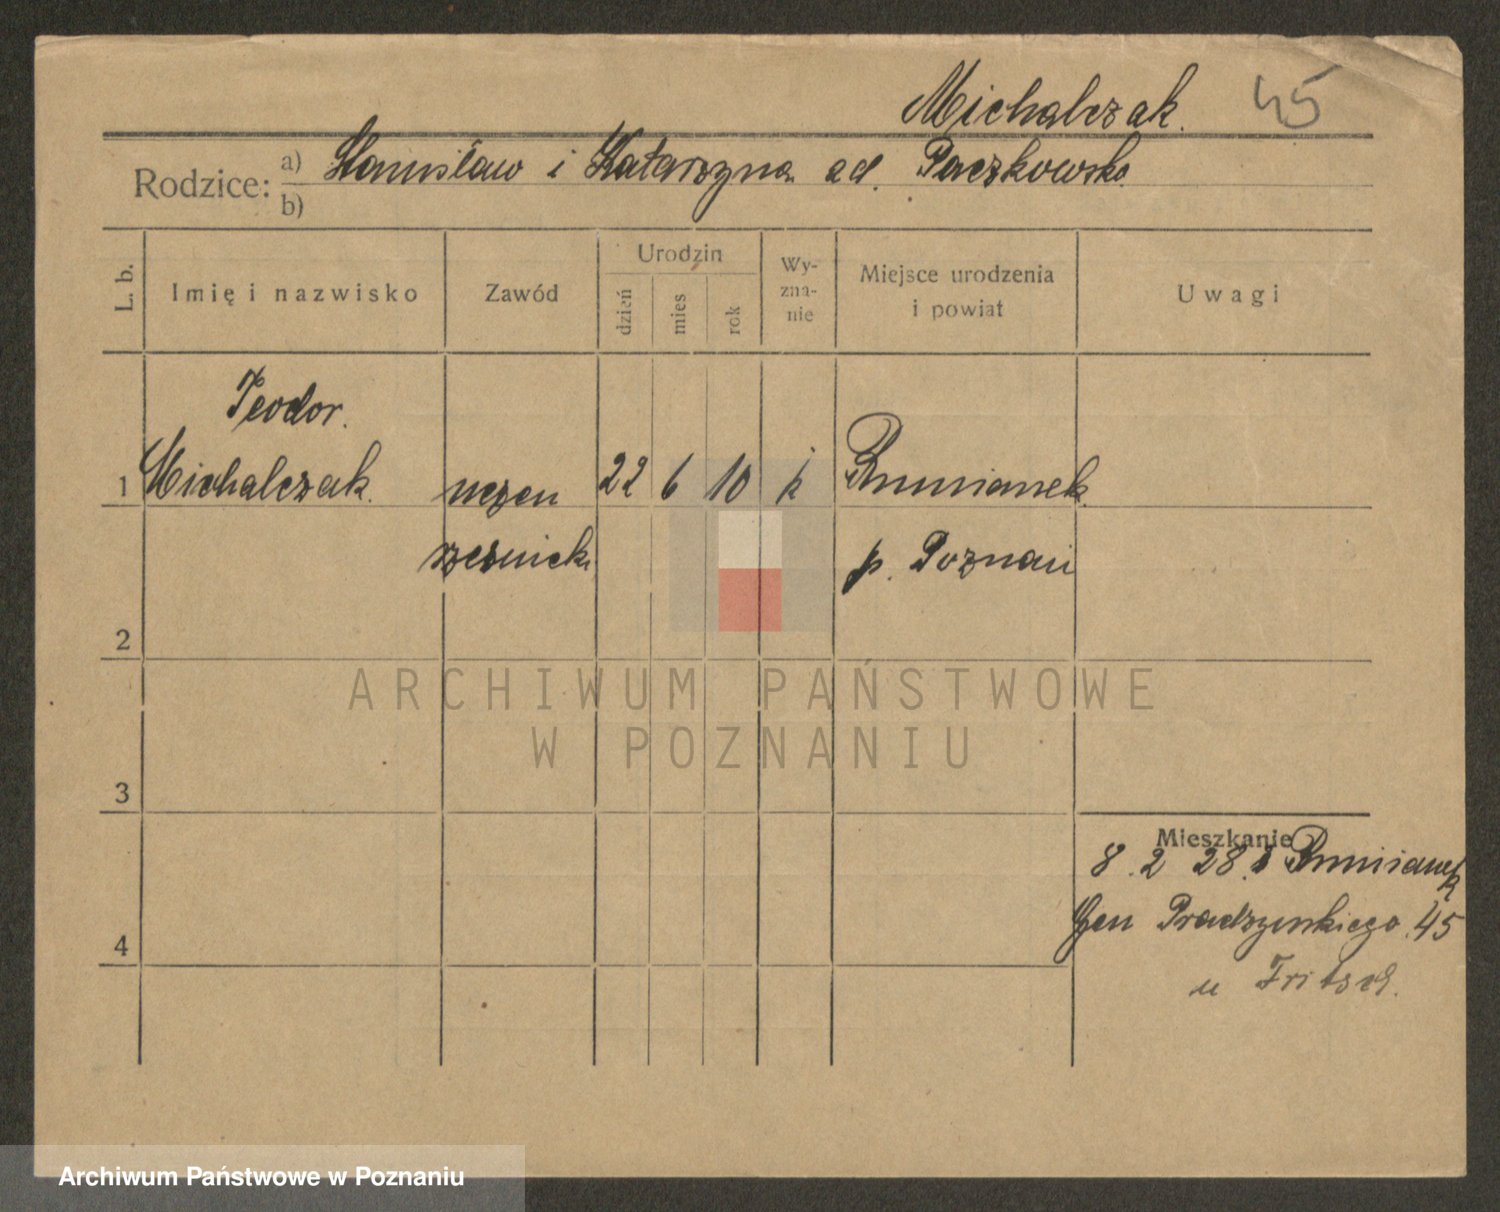 Michalczak. 45
Rodzice: a) Stanisław i Katarzyna ad. Paczkowska
b)
L. b. Imię i nazwisko Zawód Urodzin dzień mies rok Wy-zna-nie Miejsce urodzenia i powiat Uwagi
Teodor.
1 Michalczak. uczen 22 6 10 k Rumianek
rzeźnick. p. Poznań
2
ARCHIWUM PAŃSTWOWE
W POZNANIU
3
Mieszkanie
8.2 28. Rumianek
4 Gen Prądzyńskiego 45
u Fritsch.
Archiwum Państwowe w Poznaniu